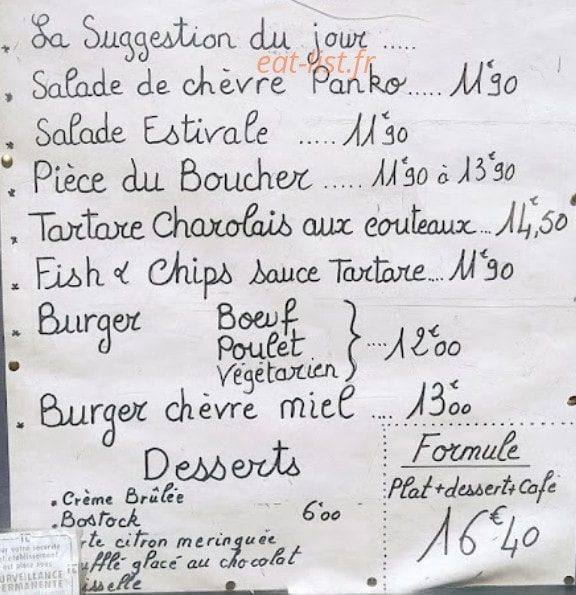 * La Suggestion du jour .....
eat-list.fr
* Salade de chèvre Panko..... 11€90
* Salade Estivale ..... 11€90
* Pièce du Boucher ..... 11€90 à 13€90
* Tartare Charolais aux couteaux... 14€,50
* Fish & Chips sauce Tartare.... 11€90
* Burger Boeuf
Poulet
Végétarien } .... 12€00
* Burger chèvre miel .... 13€00
Desserts
. Crème Brûlée
. Bostock 6€00
rte citron meringuée
ufflé glacé au chocolat
isselle
Formule
Plat+dessert+Café
16€40
votre sécurité
établissement
est placé sous
SURVEILLANCE
PERMANENTE